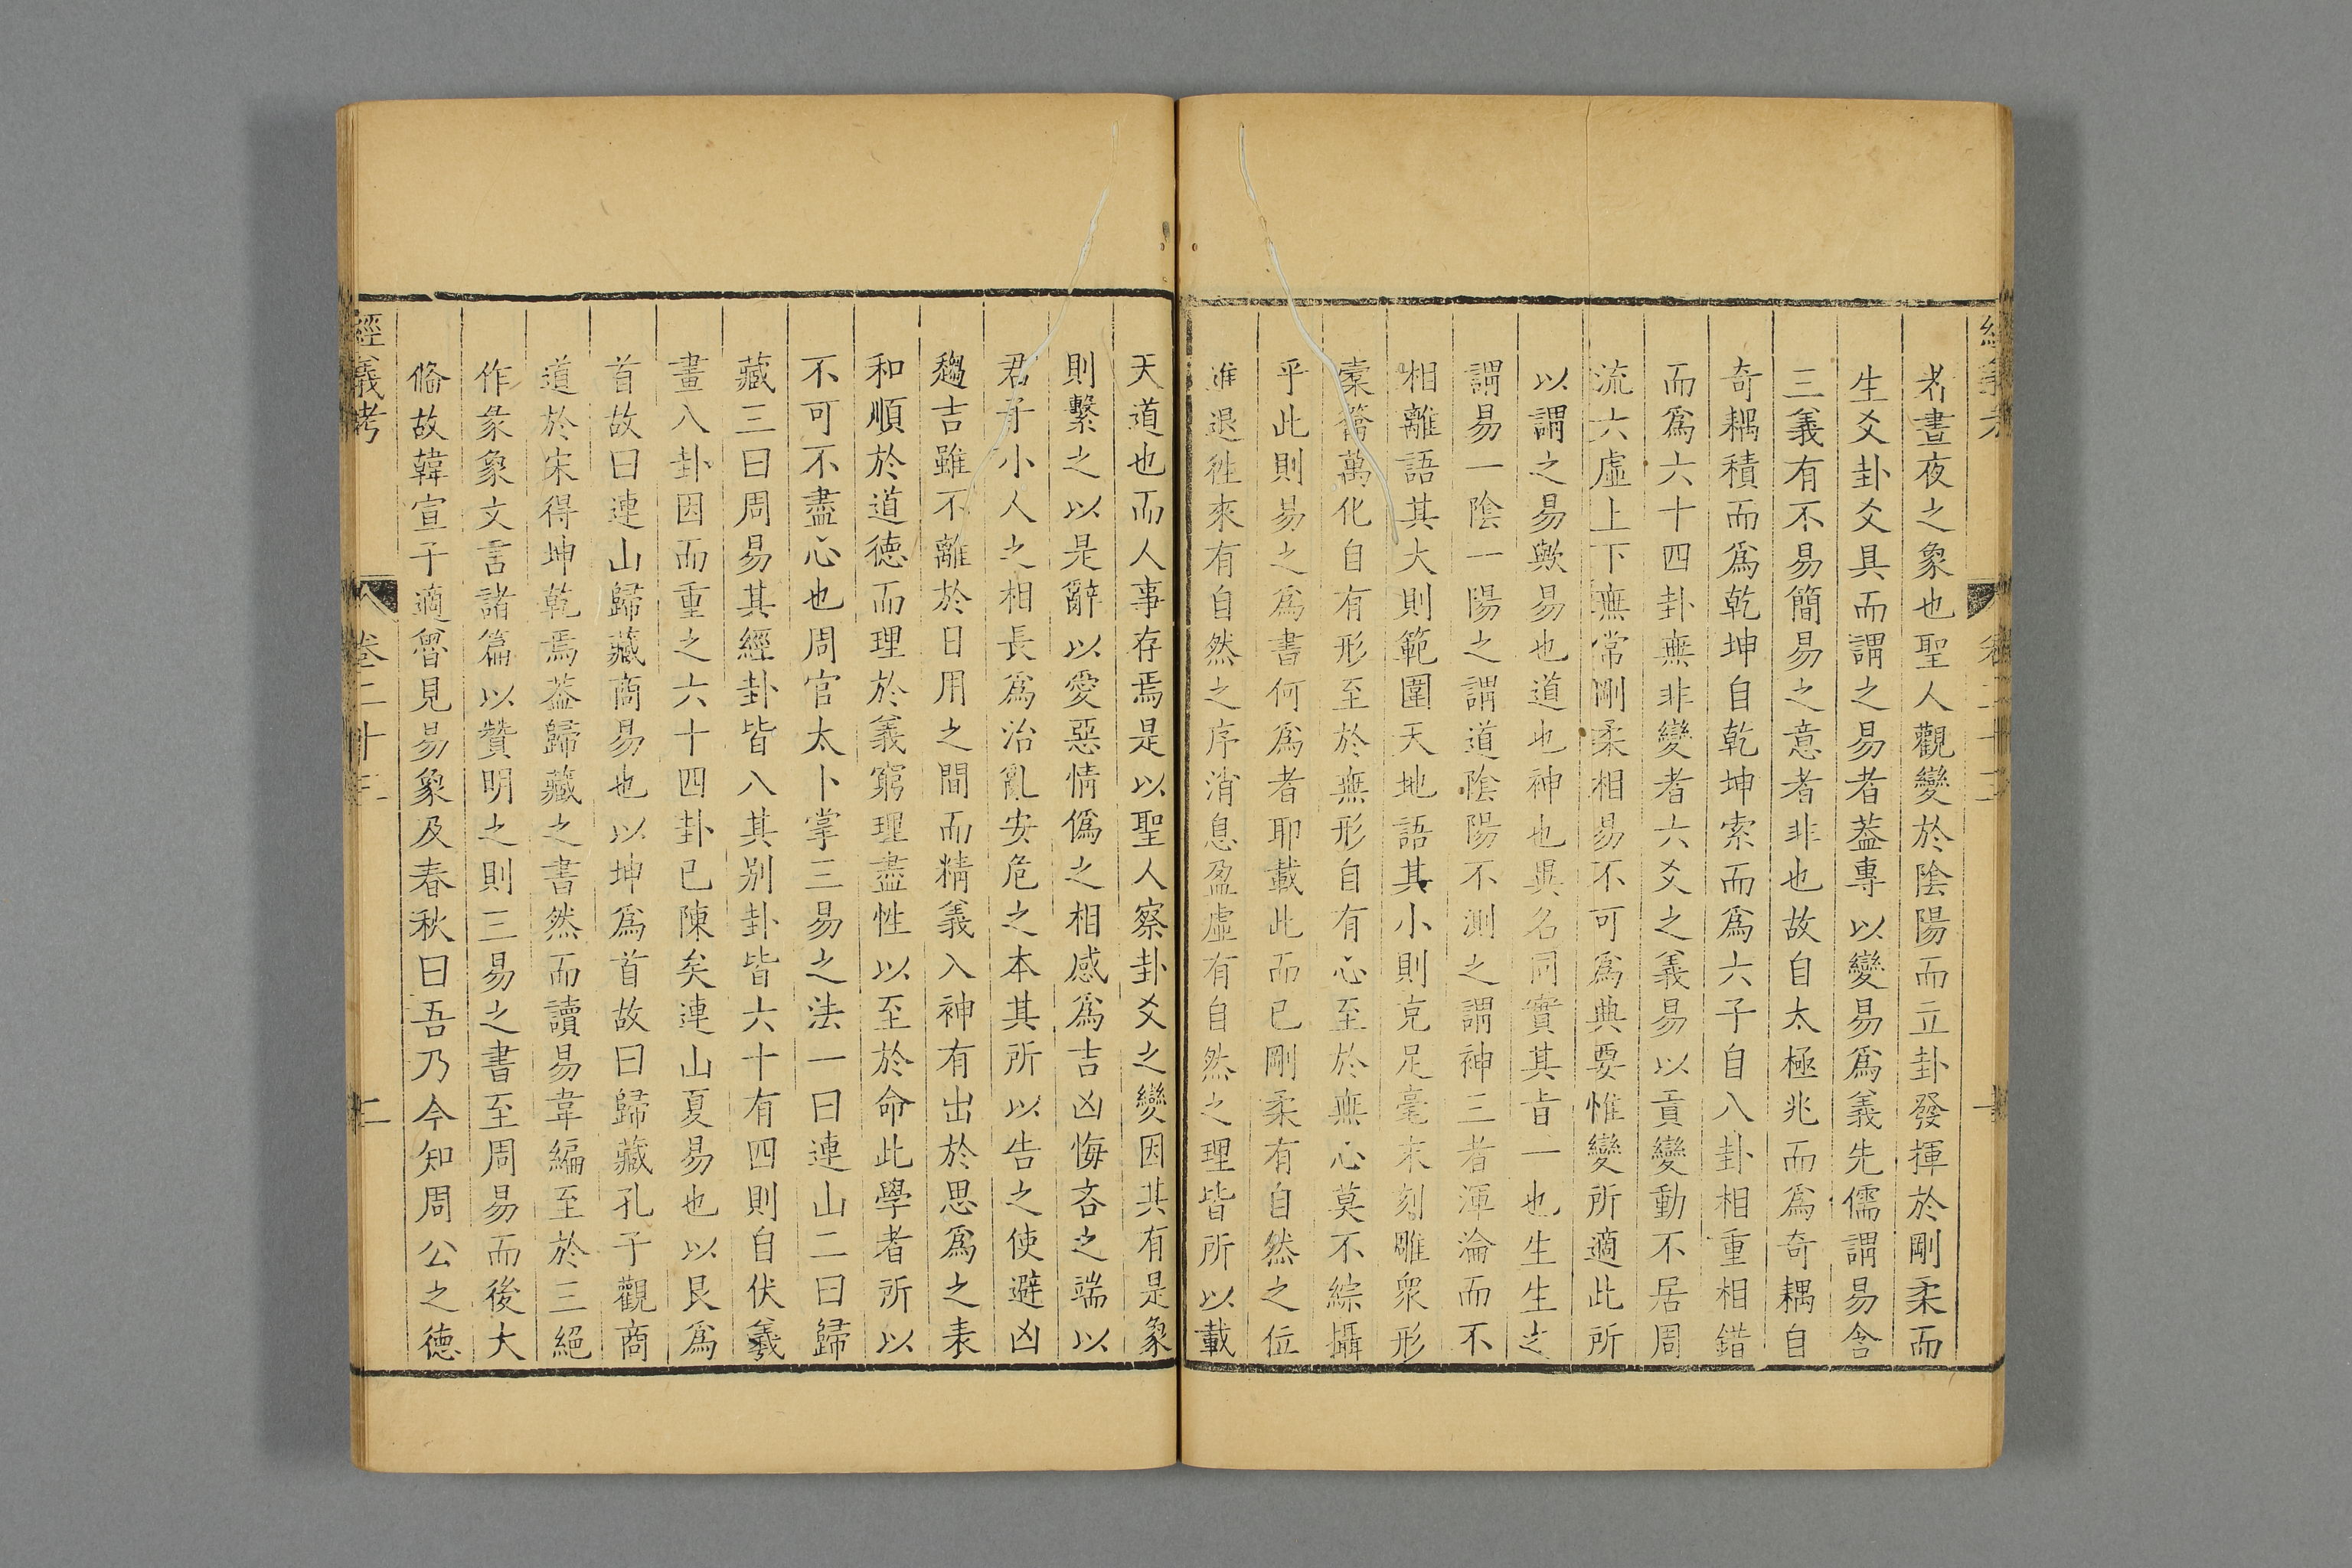 者晝夜之象也聖人觀變於陰陽而立卦發揮於剛柔而
生爻卦爻具而謂之易者葢專以變易爲義先儒謂易含
三義有不易簡易之意者非也故自太極兆而爲奇耦自
奇耦積而爲乾坤自乾坤索而爲六子自八卦相重相錯
而爲六十四卦無非變者六爻之義易以貢變動不居周
流六虛上下無常剛柔相易不可爲典要惟變所適此所
以謂之易歟易也道也神也異名同實其旨一也生生之
謂易一陰一陽之謂道陰陽不測之謂神三者渾淪而不
相離語其大則範圍天地語其小則充足毫末刻雕衆形
橐籥萬化自有形至於無形自有心至於無心莫不綜攝
乎此則易之爲書何爲者耶載此而已剛柔有自然之位
進退徃來有自然之序消息盈虛有自然之理皆所以載
天道也而人事存焉是以聖人察卦爻之變因其有是象
則繫之以是辭以愛惡情僞之相感爲吉凶悔吝之端以
君子小人之相長爲治亂安危之本其所以告之使避凶
趨吉雖不離於日用之間而精義入神有出於思爲之表
和順於道德而理於義窮理盡性以至於命此學者所以
不可不盡心也周官太卜掌三易之法一曰連山二曰歸
藏三曰周易其經卦皆八其别卦皆六十有四則自伏羲
畫八卦因而重之六十四卦已陳矣連山夏易也以艮爲
首故曰連山歸藏商易也以坤爲首故曰歸藏孔子觀商
道於宋得坤乾焉葢歸藏之書然而讀易韋編至於三絕
作彖象文言諸篇以贊明之則三易之書至周易而後大
偹故韓宣子適魯見易象及春秋曰吾乃今知周公之德
經義考
卷二十三
二